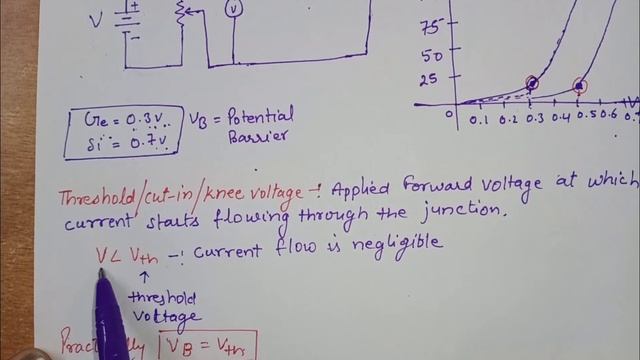 V
+
-
V
75
50
25
0 0.1 0.2 0.3 0.4 0.5 0.6
Ge = 0.3v
Si = 0.7v
VB = Potential
Barrier
Threshold/cut-in/knee voltage -: Applied forward voltage at which
current starts flowing through the junction.
V < Vth -: Current flow is negligible
↑
threshold
voltage
Practically VB = Vth